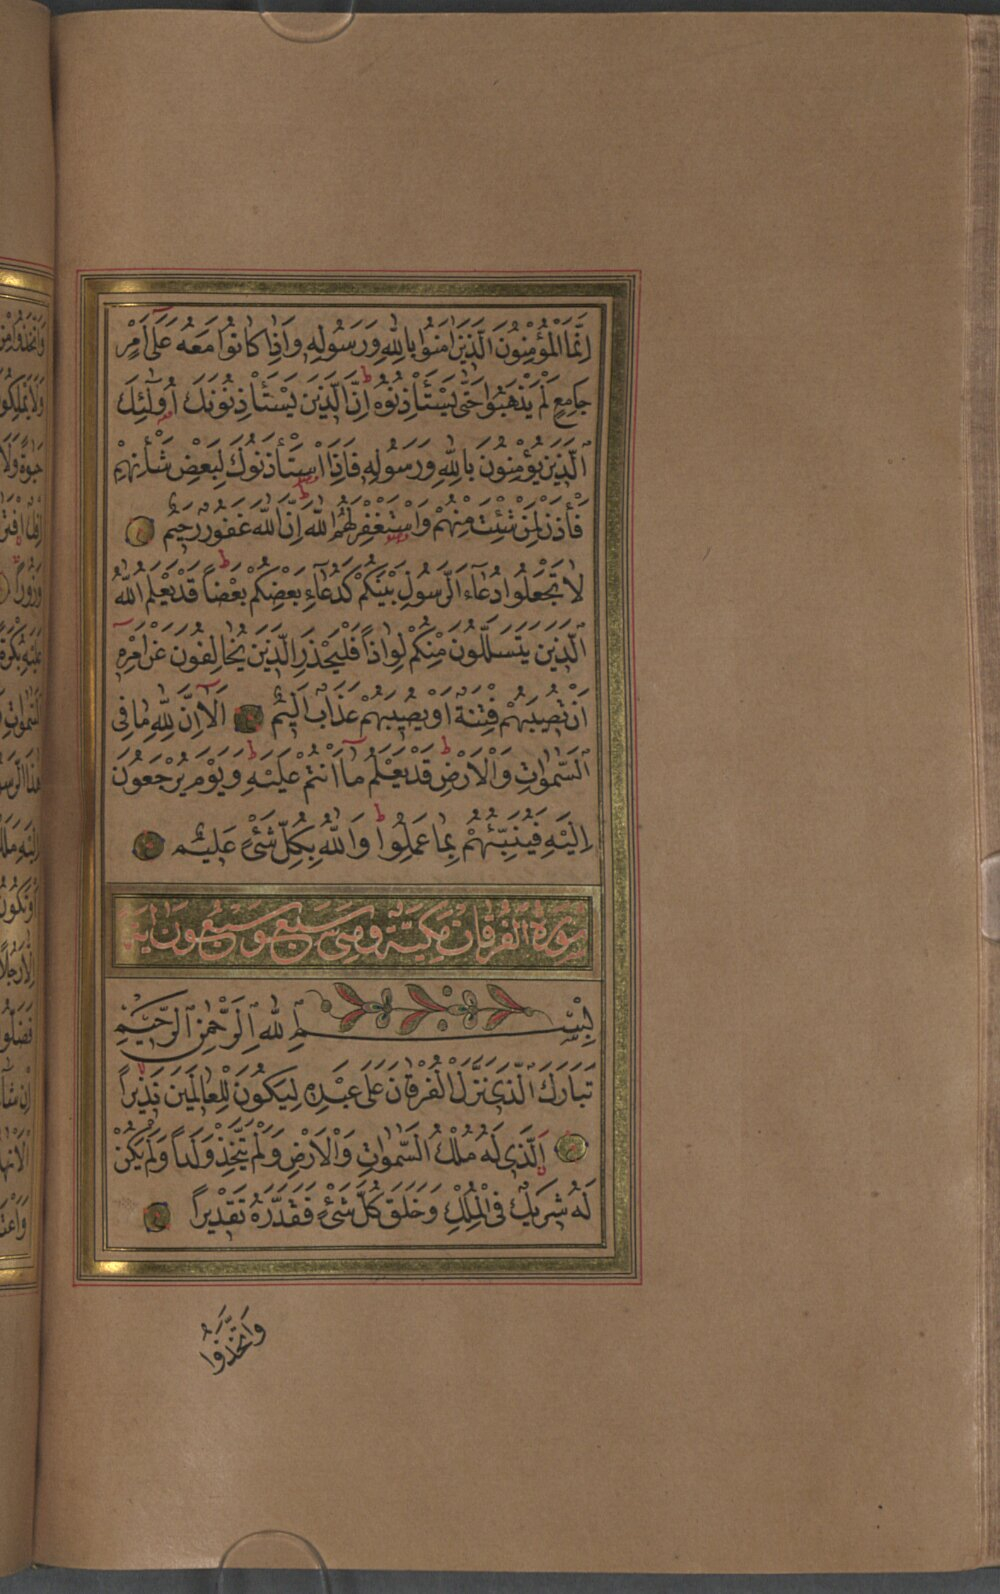 اِنَّمَا الْمُؤْمِنُونَ الَّذِينَ اٰمَنُوا بِاللّٰهِ وَرَسُولِهِ وَاِذَا كَانُوا مَعَهُ عَلٰٓى اَمْرٍ
جَامِعٍ لَمْ يَذْهَبُوا حَتّٰى يَسْتَأْذِنُوهُ اِنَّ الَّذِينَ يَسْتَأْذِنُونَكَ اُولٰٓئِكَ
الَّذِينَ يُؤْمِنُونَ بِاللّٰهِ وَرَسُولِهِ فَاِذَا اسْتَأْذَنُوكَ لِبَعْضِ شَأْنِهِمْ
فَأْذَنْ لِمَنْ شِئْتَ مِنْهُمْ وَاسْتَغْفِرْ لَهُمُ اللّٰهَ اِنَّ اللّٰهَ غَفُورٌ رَحِيمٌ
لَا تَجْعَلُوا دُعَاءَ الرَّسُولِ بَيْنَكُمْ كَدُعَاءِ بَعْضِكُمْ بَعْضاً قَدْ يَعْلَمُ اللّٰهُ
الَّذِينَ يَتَسَلَّلُونَ مِنْكُمْ لِوَاذاً فَلْيَحْذَرِ الَّذِينَ يُخَالِفُونَ عَنْ اَمْرِهٓ
اَنْ تُصِيبَهُمْ فِتْنَةٌ اَوْ يُصِيبَهُمْ عَذَابٌ اَلِيمٌ اَلَٓا اِنَّ لِلّٰهِ مَا فِى
السَّمٰوَاتِ وَالْاَرْضِ قَدْ يَعْلَمُ مَٓا اَنْتُمْ عَلَيْهِ وَيَوْمَ يُرْجَعُونَ
اِلَيْهِ فَيُنَبِّئُهُمْ بِمَا عَمِلُوا وَاللّٰهُ بِكُلِّ شَىْءٍ عَلِيمٌ
سُورَةُ الْفُرْقَانِ مَكِّيَّةٌ وَهِىَ سَبْعٌ وَسَبْعُونَ اٰيَة
بِسْمِ اللّٰهِ الرَّحْمٰنِ الرَّحِيمِ
تَبَارَكَ الَّذِى نَزَّلَ الْفُرْقَانَ عَلٰى عَبْدِهِ لِيَكُونَ لِلْعَالَمِينَ نَذِيراً
اَلَّذِى لَهُ مُلْكُ السَّمٰوَاتِ وَالْاَرْضِ وَلَمْ يَتَّخِذْ وَلَداً وَلَمْ يَكُنْ
لَهُ شَرِيكٌ فِى الْمُلْكِ وَخَلَقَ كُلَّ شَىْءٍ فَقَدَّرَهُ تَقْدِيراً
وَاتَّخَذُوا